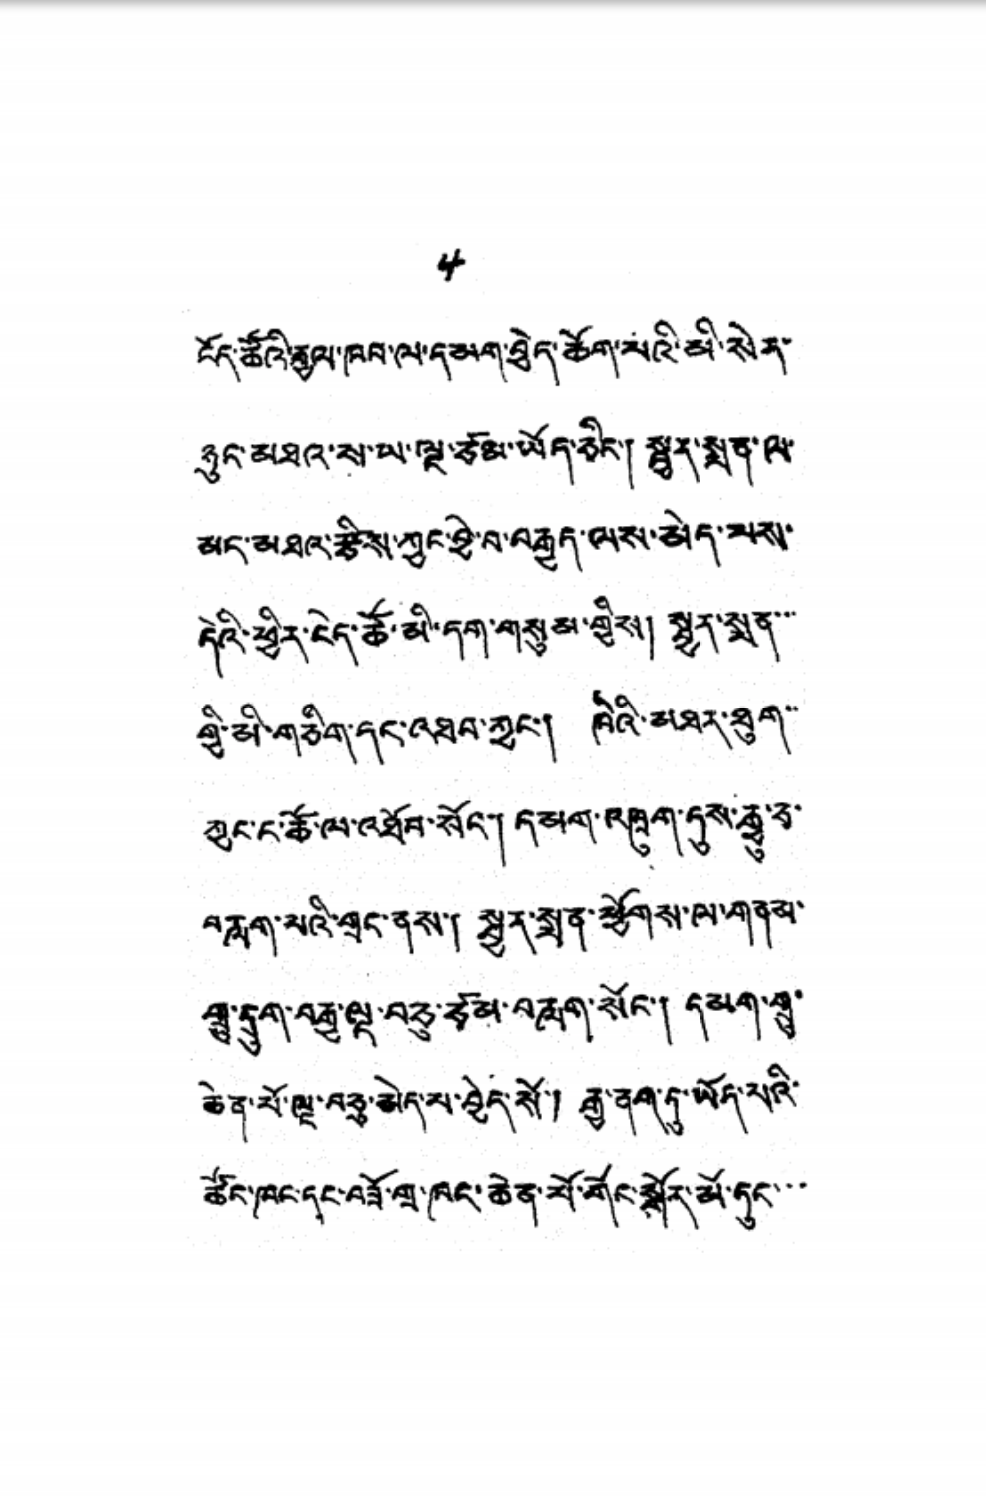 4
ངོད་ཚོའི་རྒྱལ་ཁབ་ལ་དམག་བྱེད་ཆོག་པའི་མི་སེར་
ཉུང་མཐའ་ས་ཡ་ལྔ་ཙམ་ཡོད་ཅིང་། སྦྱར་སྨན་ལ་
མང་མཐའ་རྩིས་ཀྱང་བྱེ་བ་བརྒྱད་ལས་མེད་པས་
དེའི་ཕྱིར་ངེད་ཚོ་མི་དག་གསུམ་གྱིས། སྦྱར་སྨན་
གྱི་མི་གཅིག་དང་འཐབ་ཀྱང་། ཁོའི་མཐར་ཐུག་
ཀྱང་ང་ཚོ་ལ་འཐོབ་སོང་། དམག་འཁྲུག་དུས་རྒྱུ་
བརླག་པའི་གྲང་ནས། སྦྱར་སྨན་ཕྱོགས་ལ་གནམ་
གྲུ་དྲུག་བརྒྱ་ལྔ་བཅུ་ཙམ་བརླག་སོང་། དམག་གྲུ་
ཆེན་པོ་ལྔ་བཅུ་མེད་པ་བྱེད་སོ། རྒྱ་ནག་དུ་ཡོད་པའི་
ཚོང་ཁང་དང་བཟོ་གྲྭ་ཁང་ཆེན་པོ་གོང་སྐོར་མོ་དུང་